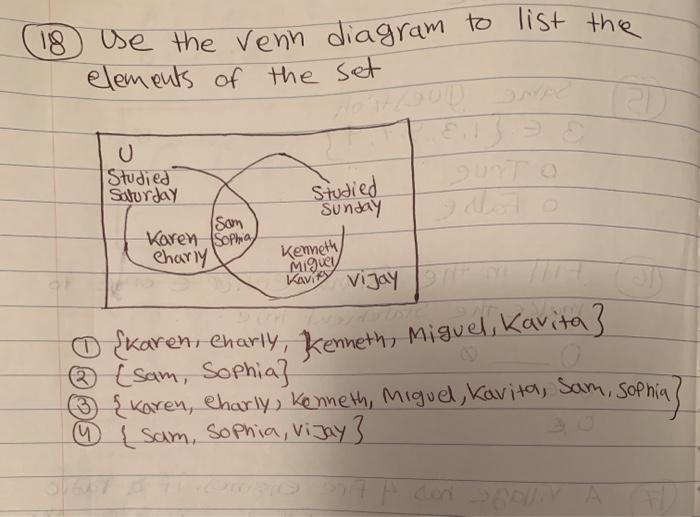 18 Use the Venn diagram to list the
elements of the set
U
Studied
Saturday
Studied
Sunday
Sam
Sophia
Karen
eharly
Kenneth
Miguel
Kavita
Vijay
1 {Karen, eharly, Kenneth, Miguel, Kavita}
2 {Sam, Sophia}
3 {Karen, eharly, Kenneth, Miguel, Kavita, Sam, Sophia}
4 {Sam, Sophia, Vijay}